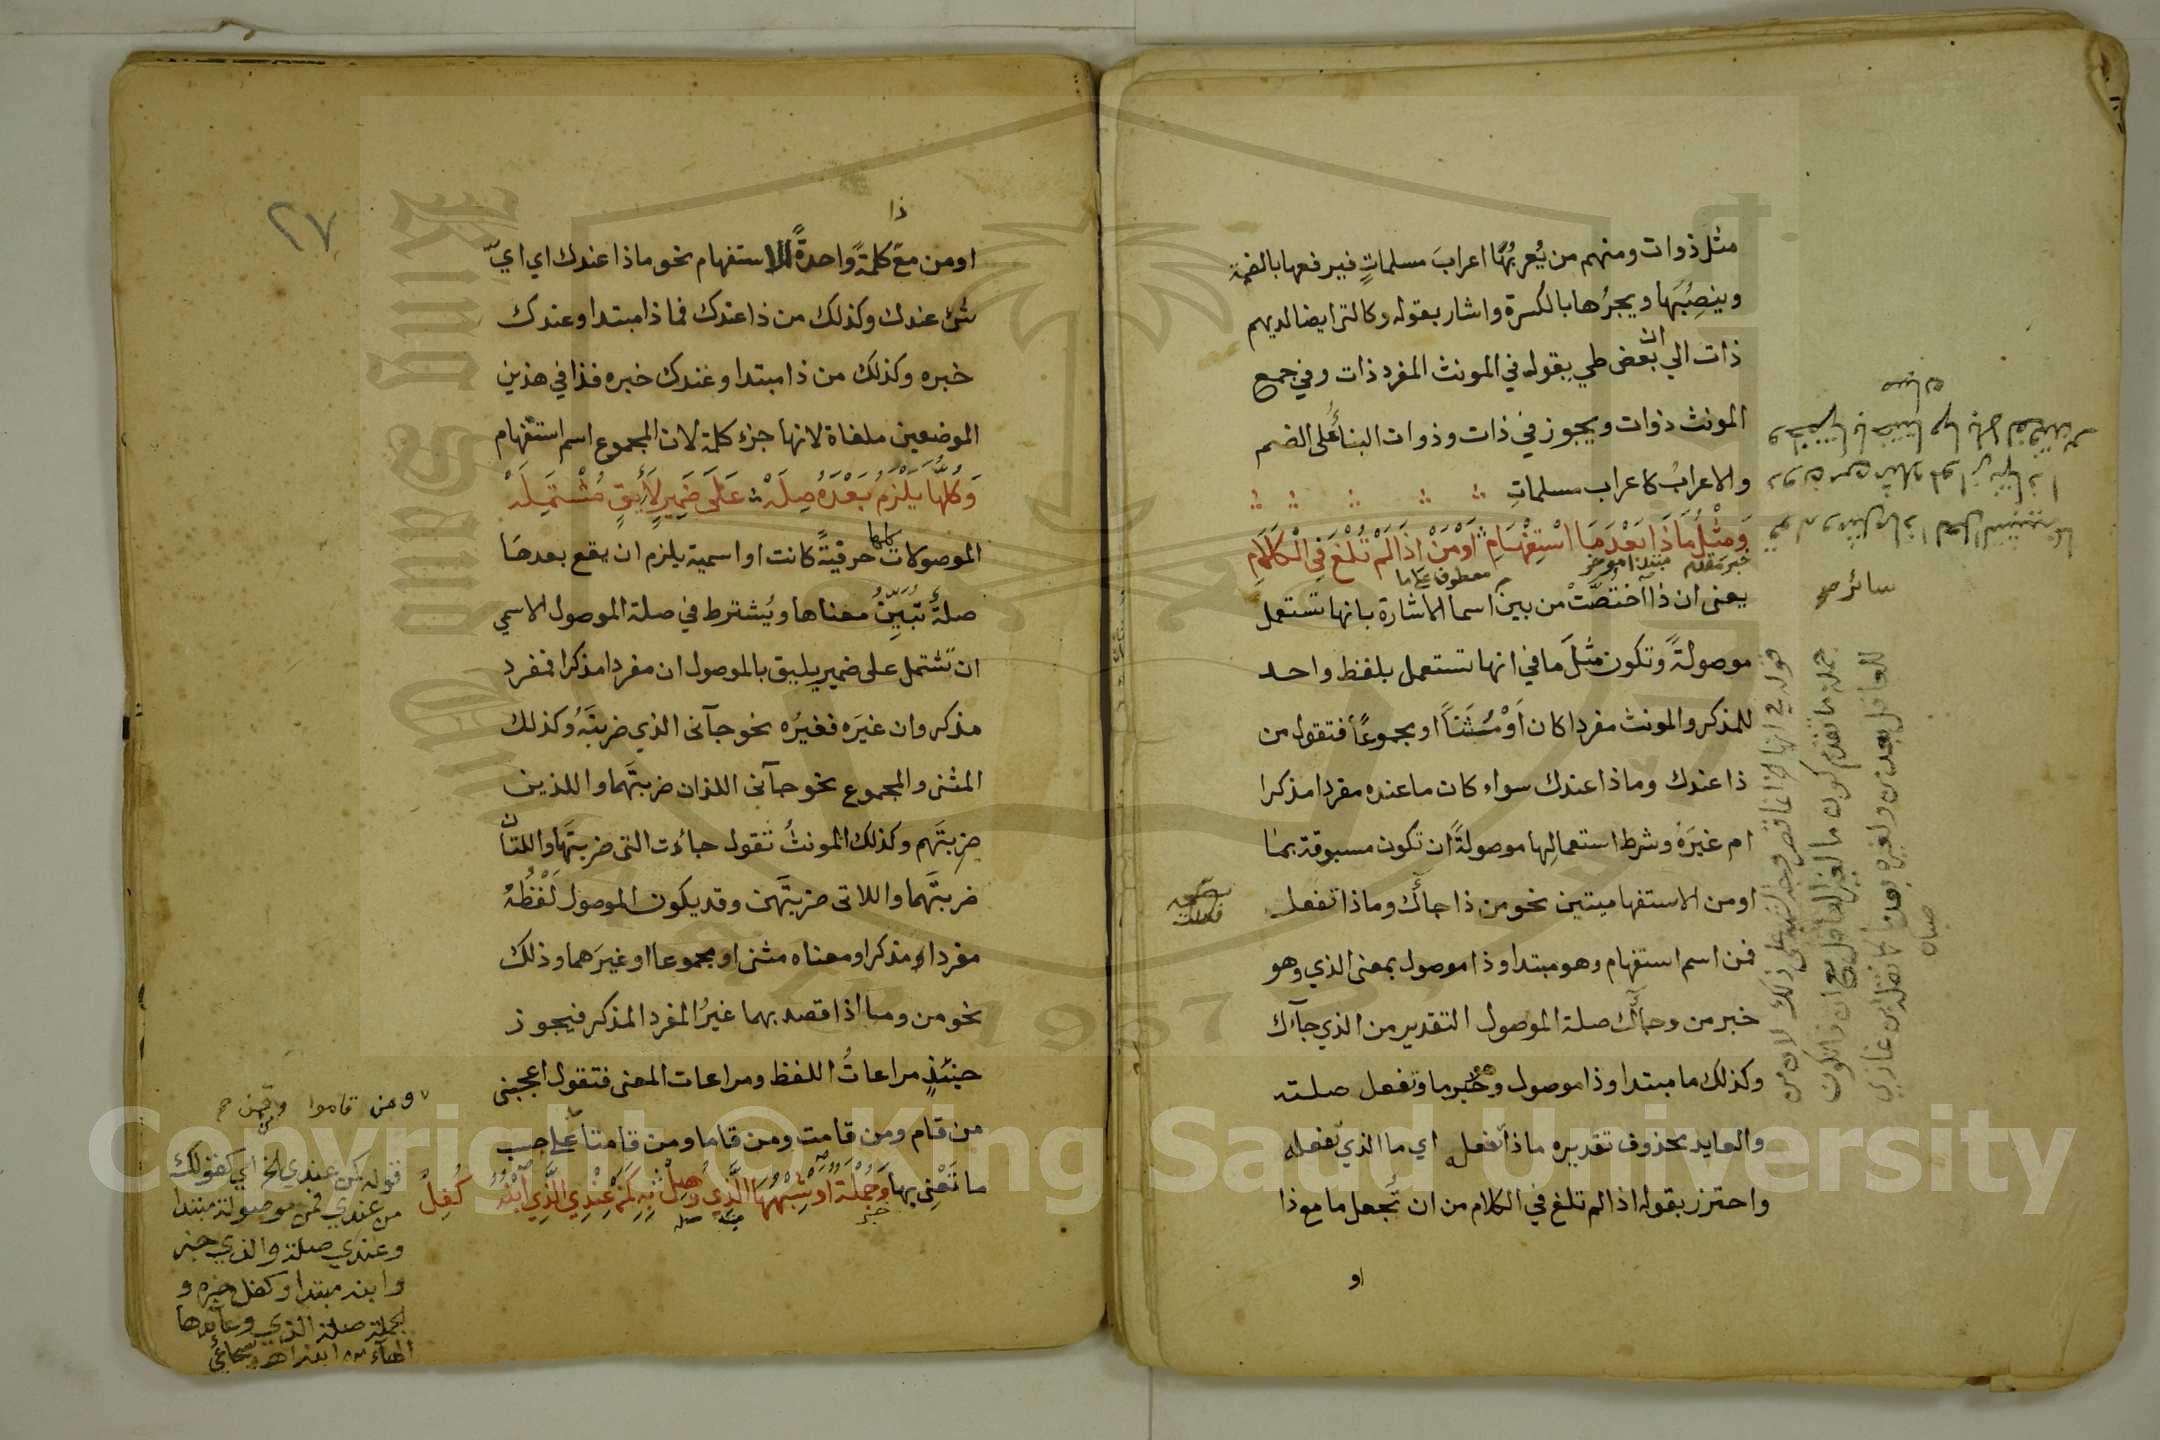 مثل ذوات ومنهم من يُعربُهُا اعرابَ مسلماتٍ فيرفعها بالضمة
وينصِبُهَا ويجرُها بالكسرة واشار بقوله وكالتى ايضا لديهم
ذات الي ان بعض طي يقول في المونث المفرد ذات وفي جمع
المونث ذوات ويجوز في ذات وذوات البنأُ على الضم
والاعرابُ كاعراب مسلماتِ
وَمِثْلُ مَا ذَا بَعْدَ مَا اسْتِفْهَامِ اَوْ مَنْ اِذَا لَمْ تُلْغَ فِي الْكَلَامِ
خبر مقدم مبتدا موخر
معطوف على ما
يعنى ان ذا آختُصَّتْ من بين اسما الاشارة بانها تستعمل
موصولةً وتكون مثلَ ما في انها تستعمل بلفظ واحد
للمذكر والمونث مفردا كان اَوْ مُثَنَاً او مجموعًا فتقول من
ذا عندك وماذا عندك سواء كان ما عنده مفردا مذكرا
ام غيرَهُ وشرط استعمالِها موصولةً ان تكون مسبوقة بما
او من الاستفهاميتين نحو من ذا جاأك وماذا تفعل
فمن اسم استفهام وهو مبتدا وذا موصول بمعنى الذي وهو
خبر من وجاأك صلة الموصول التقدير من الذي جآءك
وكذلك ما مبتدا وذا موصول وهو خبر ما وتفعل صلته
والعايد محذوف تقديره ماذا تفعله اي ما الذي تفعله
واحترز بقوله اذا لم تلغ في الكلام من ان تُجعل ما مع ذا
او
سائر صح
قوله في انها الخ انما قصر وجه الشبه على ذلك لان من
جملة ما تقدم كون ما لغير العاقل مع ان ذا تكون
للعاقل بعد من ولغيره بعد ما نقله ابن غازي
صبان
٢٧
ذا
او من مع كلمةً واحدةً للاستفهام نحو ماذا عندك اي ايّ
شئ عندك وكذلك من ذا عندك فماذا مبتدا وعندك
خبره وكذلك من ذا مبتدا وعندك خبره فذا في هذين
الموضعين ملغاة لانها جزء كلمة لان المجموع اسم استفهام
وَكُلُّهَا يَلْزَمُ بَعْدَهُ صِلَهْ عَلَى ضَمِيرٍ لَائِقٍ مُشْتَمِلَهْ
الموصولات كلها حرفيةً كانت او اسمية يلزم ان يقع بعدها
صلةٌ تُبَيِّنُ معناها ويُشترط في صلة الموصول الاسمي
ان تشتمل على ضمير يليق بالموصول ان مفردا مذكرا فمفرد
مذكر وان غيرَه فغيرُه نحو جآنى الذي ضربتَهُ وكذلك
المثنى والمجموع نحو جآنى اللذان ضربتَهما واللذين
ضربتَهم وكذلك المونثُ تقول جاءت التى ضربتَها واللتان
ضربتَهما واللاتى ضربتَهن وقد يكون الموصول لَفْظُهُ
مفردا مذكرا ومعناه مثنى او مجموعا او غيرَهما وذلك
نحو من وما اذا قصد بهما غيرُ المفرد المذكر فيجوز
حينئذٍ مراعاتُ اللفظ ومراعات المعنى فتقول اعجبنى
من قام ومن قامت ومن قاما ومن قامتا على حسب
ما تَعْنِى بها وَجُمْلَةٌ اَوْ شِبْهُهَا الَّذِي وُصِلْ بِهِ كَمَنْ عِنْدِي الَّذِي اَبْنُهُ كُفِلْ
خبر صله
ومن قاموا وقمن صح
قوله كمن عندي الخ اي كقولك
من عندي فمن موصولة مبتدا
وعندي صلة والذي خبر
وابنه مبتدا وكفل خبره و
الجملة صلة الذي وعائدها
الهاء من ابنه اهـ سجاعي
Copyright © King Saud University
King Saud University
1957